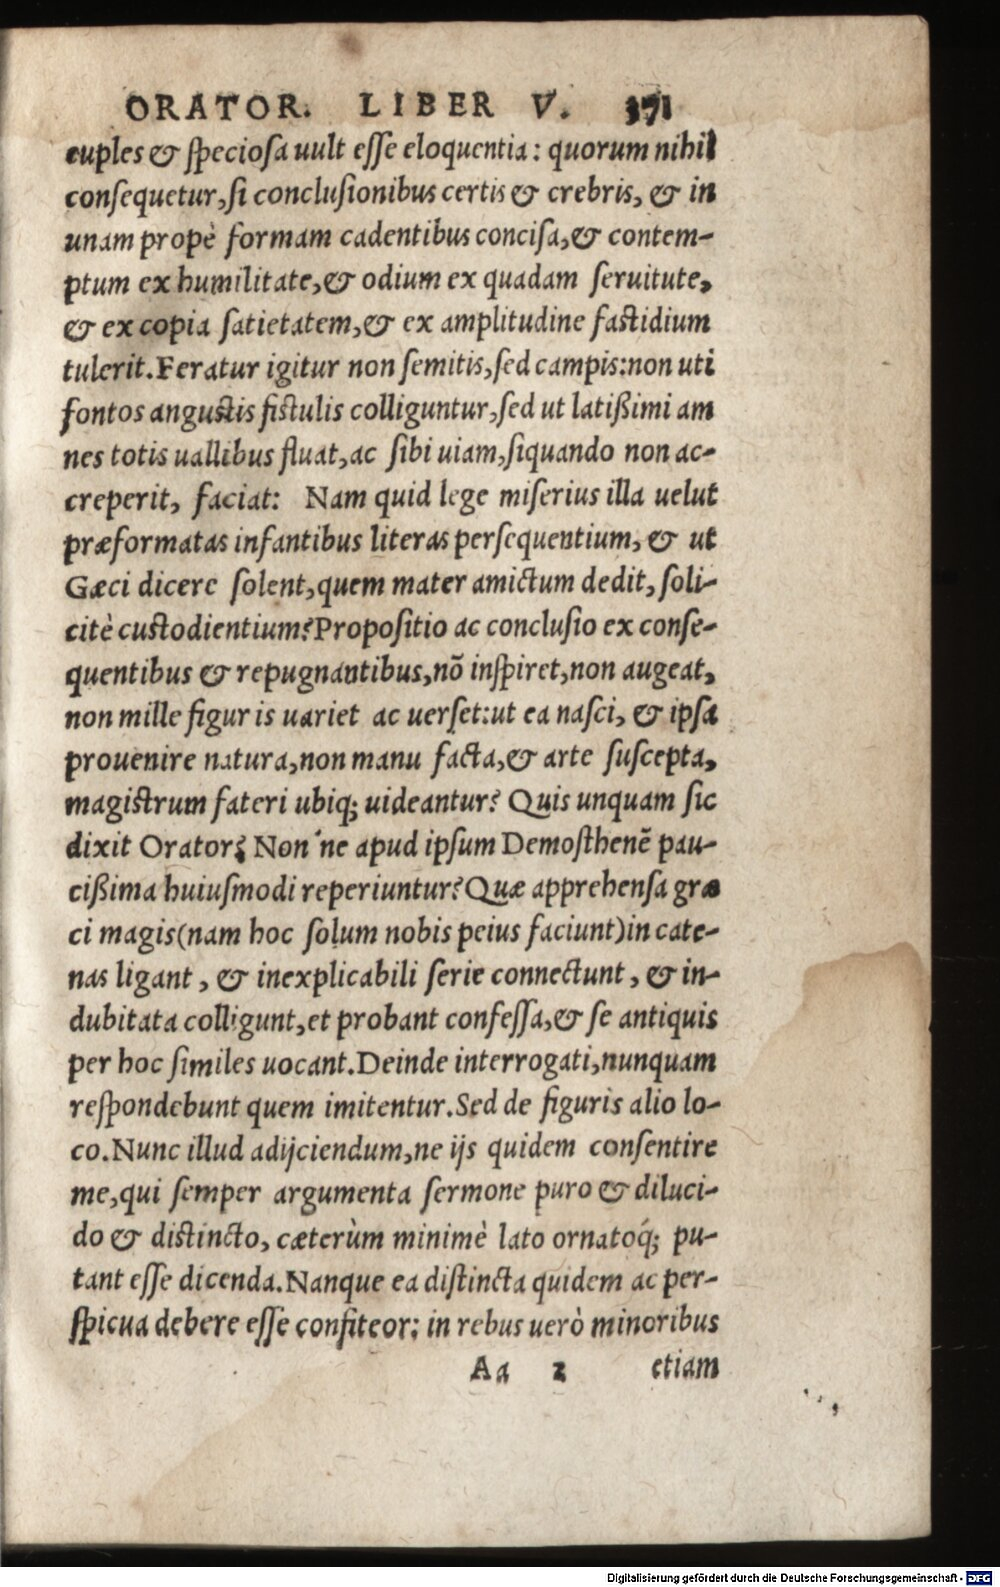 ORATOR. LIBER V. 371
cuples & speciosa uult esse eloquentia: quorum nihil
consequetur, si conclusionibus certis & crebris, & in
unam propè formam cadentibus concisa, & contem-
ptum ex humilitate, & odium ex quadam seruitute,
& ex copia satietatem, & ex amplitudine fastidium
tulerit. Feratur igitur non semitis, sed campis: non uti
fontos angustis fistulis colliguntur, sed ut latißimi am
nes totis uallibus fluat, ac sibi uiam, siquando non ac-
creperit, faciat: Nam quid lege miserius illa uelut
præformatas infantibus literas persequentium, & ut
Gæci dicere solent, quem mater amictum dedit, soli-
citè custodientium? Propositio ac conclusio ex conse-
quentibus & repugnantibus, nō inspiret, non augeat,
non mille figuris uariet ac uerset: ut ea nasci, & ipsa
prouenire natura, non manu facta, & arte suscepta,
magistrum fateri ubiq; uideantur? Quis unquam sic
dixit Orator? Non'ne apud ipsum Demosthenē pau-
cißima huiusmodi reperiuntur? Quæ apprehensa græ
ci magis (nam hoc solum nobis peius faciunt) in cate-
nas ligant, & inexplicabili serie connectunt, & in-
dubitata colligunt, et probant confessa, & se antiquis
per hoc similes uocant. Deinde interrogati, nunquam
respondebunt quem imitentur. Sed de figuris alio lo-
co. Nunc illud adijciendum, ne ijs quidem consentire
me, qui semper argumenta sermone puro & diluci-
do & distincto, cæterùm minimè lato ornatoq́; pu-
tant esse dicenda. Nanque ea distincta quidem ac per-
spicua debere esse confiteor: in rebus uerò minoribus
Aa 2 etiam
Digitalisierung gefördert durch die Deutsche Forschungsgemeinschaft - DFG